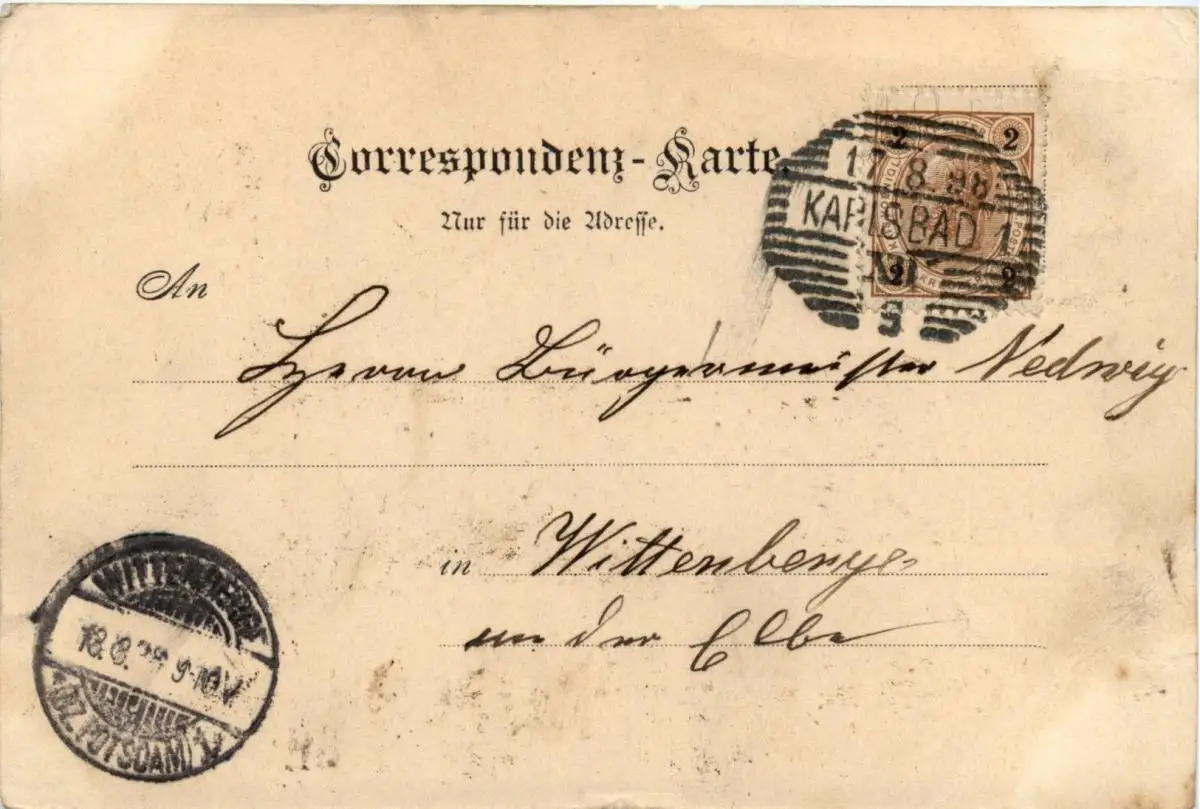 Correspondenz-Karte.
Nur für die Adresse.
2 2
17.8.98
KARLSBAD 1
2 2
An
Herrn Bürgermeister Nedwig
in Wittenberge
an der Elbe
WITTENBERGE
18.8.98 9-10V
(BZ. POTSDAM) 1